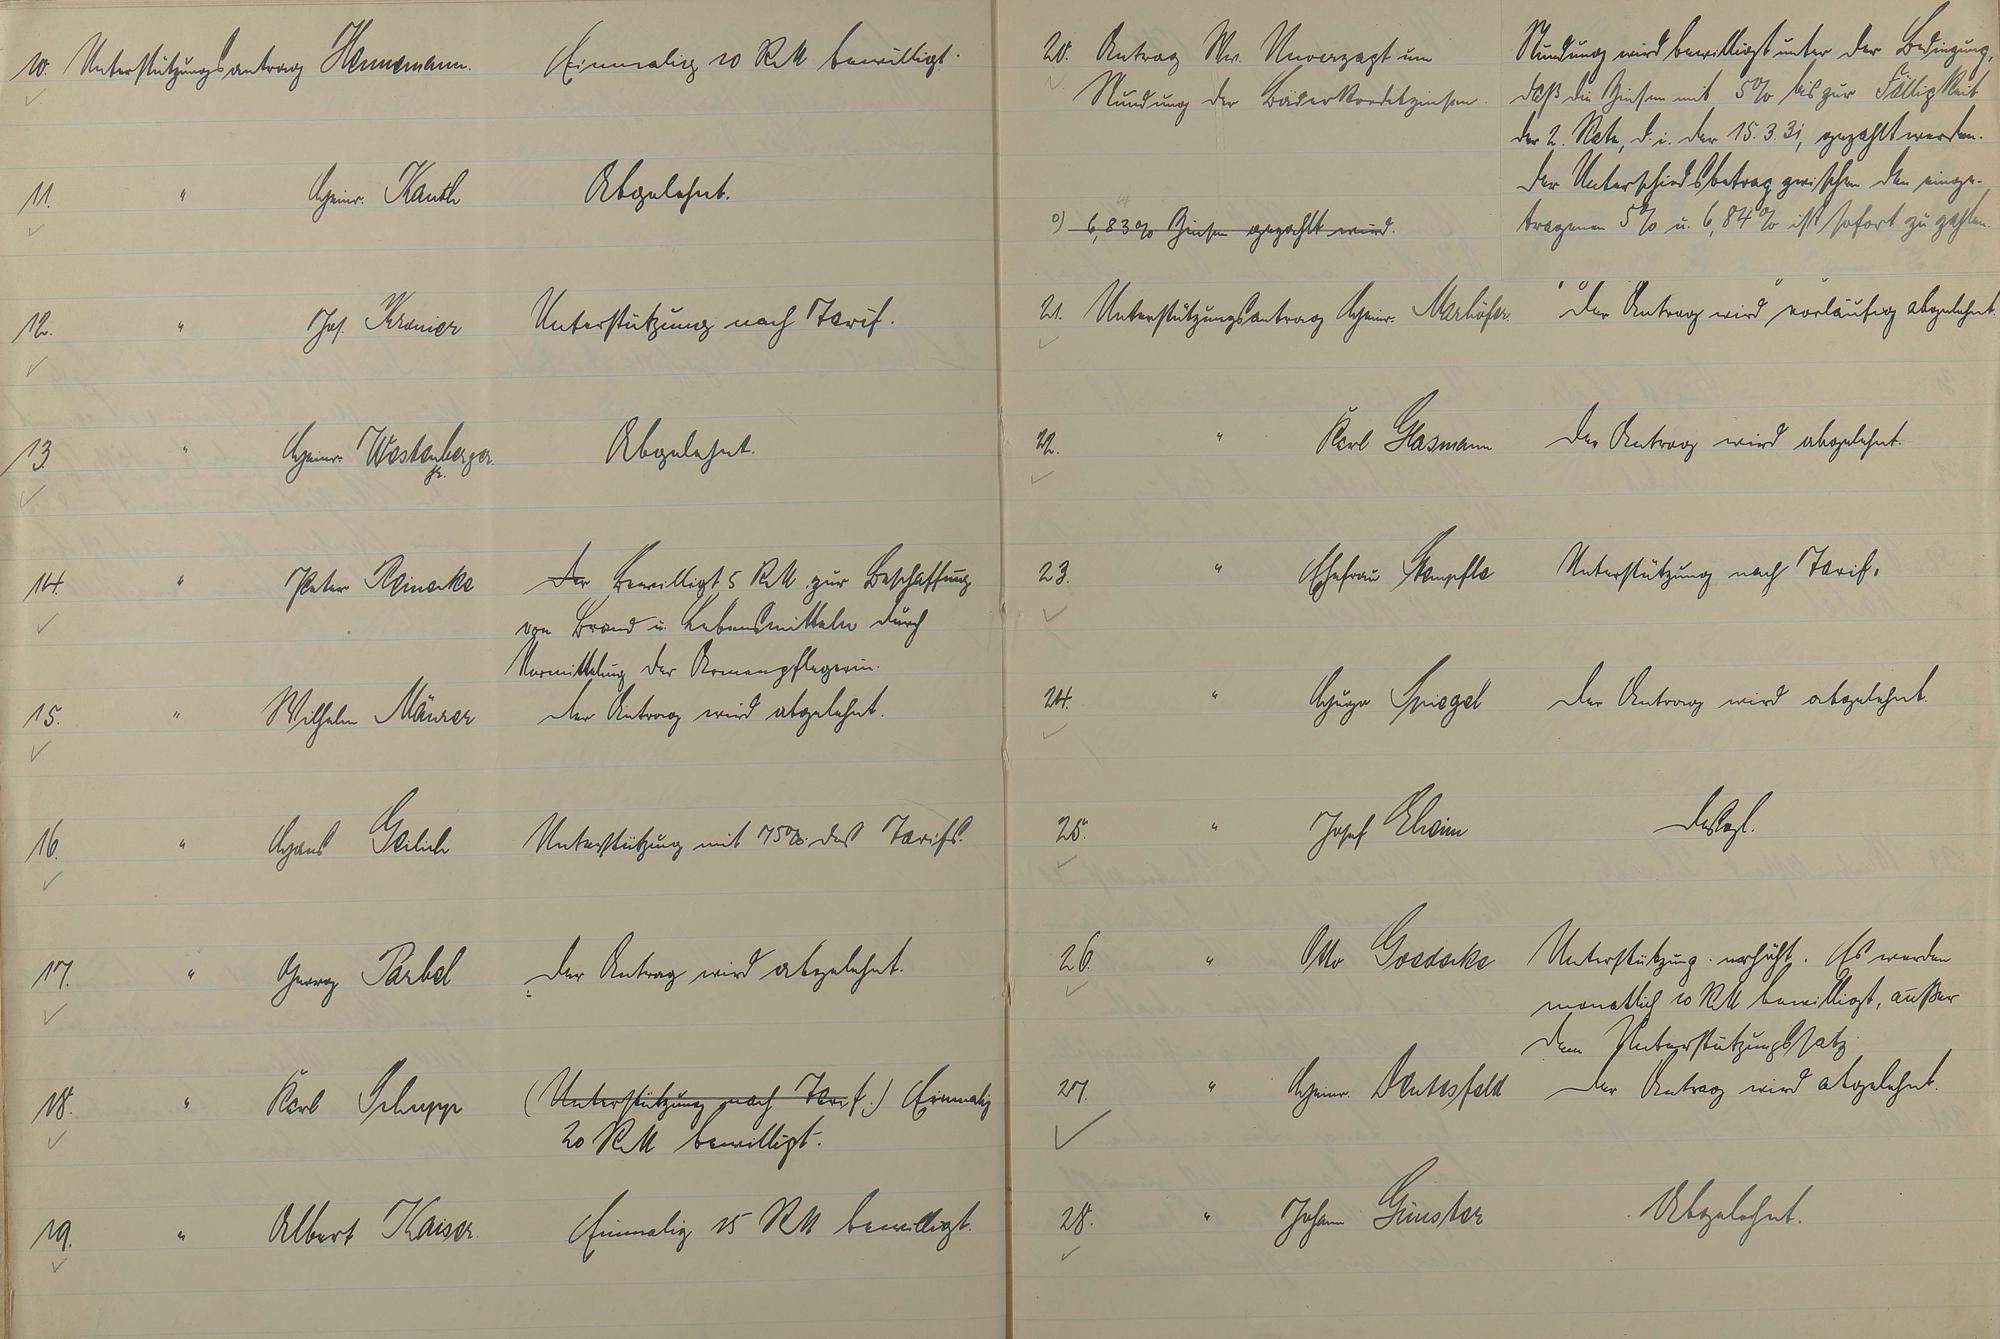 10. Unterstützungsantrag Hannemann. Einmalig 10 RM bewilligt.
11. " Heinr. Kauth Abgelehnt.
12. " Jos. Kranier Unterstützung nach Tarif.
13. " Heinr. Westenberger jr. Abgelehnt.
14. " Peter Reinecke Der Bewilligt 5 RM zur Beschaffung
von Brand u. Lebensmitteln durch
Vermittelung der Armenpflegerin.
15. " Wilhelm Mäurer Der Antrag wird abgelehnt.
16. " Hans Geilich Unterstützung mit 75% des Tarifs.
17. " Georg Parbel Der Antrag wird abgelehnt.
18. " Karl Schupp (Unterstützung nach Tarif.) Einmalig
20 RM bewilligt.
19. " Albert Kaiser. Einmalig 15 RM bewilligt.
20. Antrag Ww. Unverzagt um
Stundung der Bäderkreditzinsen.
o) 6,83% Zinsen gezahlt wird.
Stundung wird bewilligt unter der Bedingung,
daß die Zinsen mit 5% bis zur Fälligkeit
der 2. Rate, d. i. der 15. 3. 31, gezahlt werden.
Der Unterschiedsbetrag zwischen den einge-
tragenen 5% u. 6,84% ist sofort zu zahlen.
21. Unterstützungsantrag Heinr. Marhöfer. Der Antrag wird vorläufig abgelehnt.
22. " Karl Glasmann Der Antrag wird abgelehnt.
23. " Ehefrau Stempfle Unterstützung nach Tarif.
24. " Hugo Spiegel Der Antrag wird abgelehnt.
25. " Josef Eheim Desgl.
26. " Otto Goedecke Unterstützung erhöht. Es werden
monatlich 10 RM bewilligt, außer
dem Unterstützungssatz
27. " Heinr. Dentesfeld Der Antrag wird abgelehnt.
28. " Johann Günster Abgelehnt.